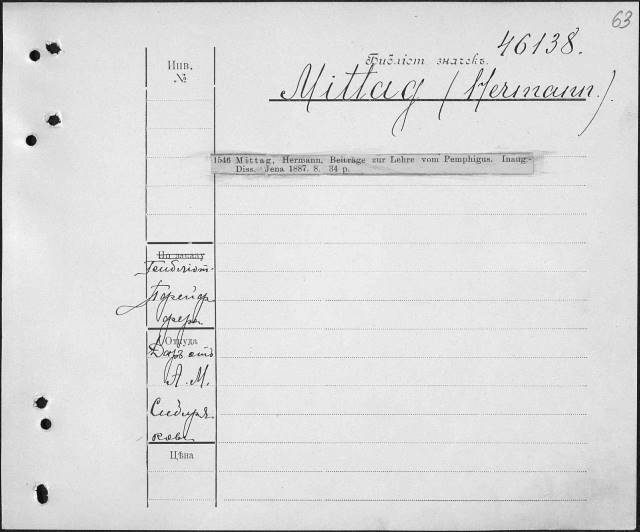 63
46138.
Библіот. значекъ.
Mittag (Hermann.)
Инв.
№
1546 Mittag, Hermann, Beiträge zur Lehre vom Pemphigus. Inaug.-
Diss. Jena 1887. 8. 34 p.
По заказу
Библіот.
Пфейф
фера
Откуда
Даръ отъ
А. М.
Сибиря
кова
Цѣна